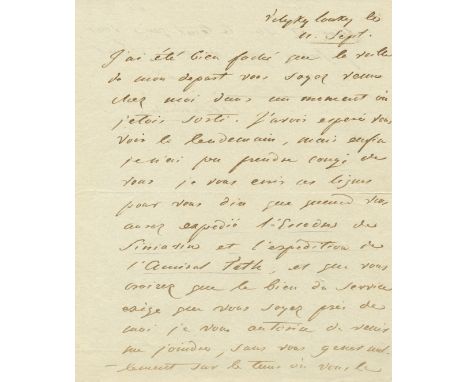 Velyky Louky le
11. Sept.
J'ai été bien faché que la veille
de mon depart vous soyez venu
chez moi dans un moment où
j'etois sorti. J'avois esperé vous
voir le lendemain, mais enfin
je n'ai pu prendre congé de
vous je vous ecris ces lignes
pour vous dire que quand vous
aurez expedié l'Escadre de
Siniavin et l'expedition de
l'Amiral Teth, et que vous
croirez que le bien du service
exige que vous soyez près de
moi je vous autorise de venir
me joindre, sans vous gener nul-
-lement sur le tems où vous le